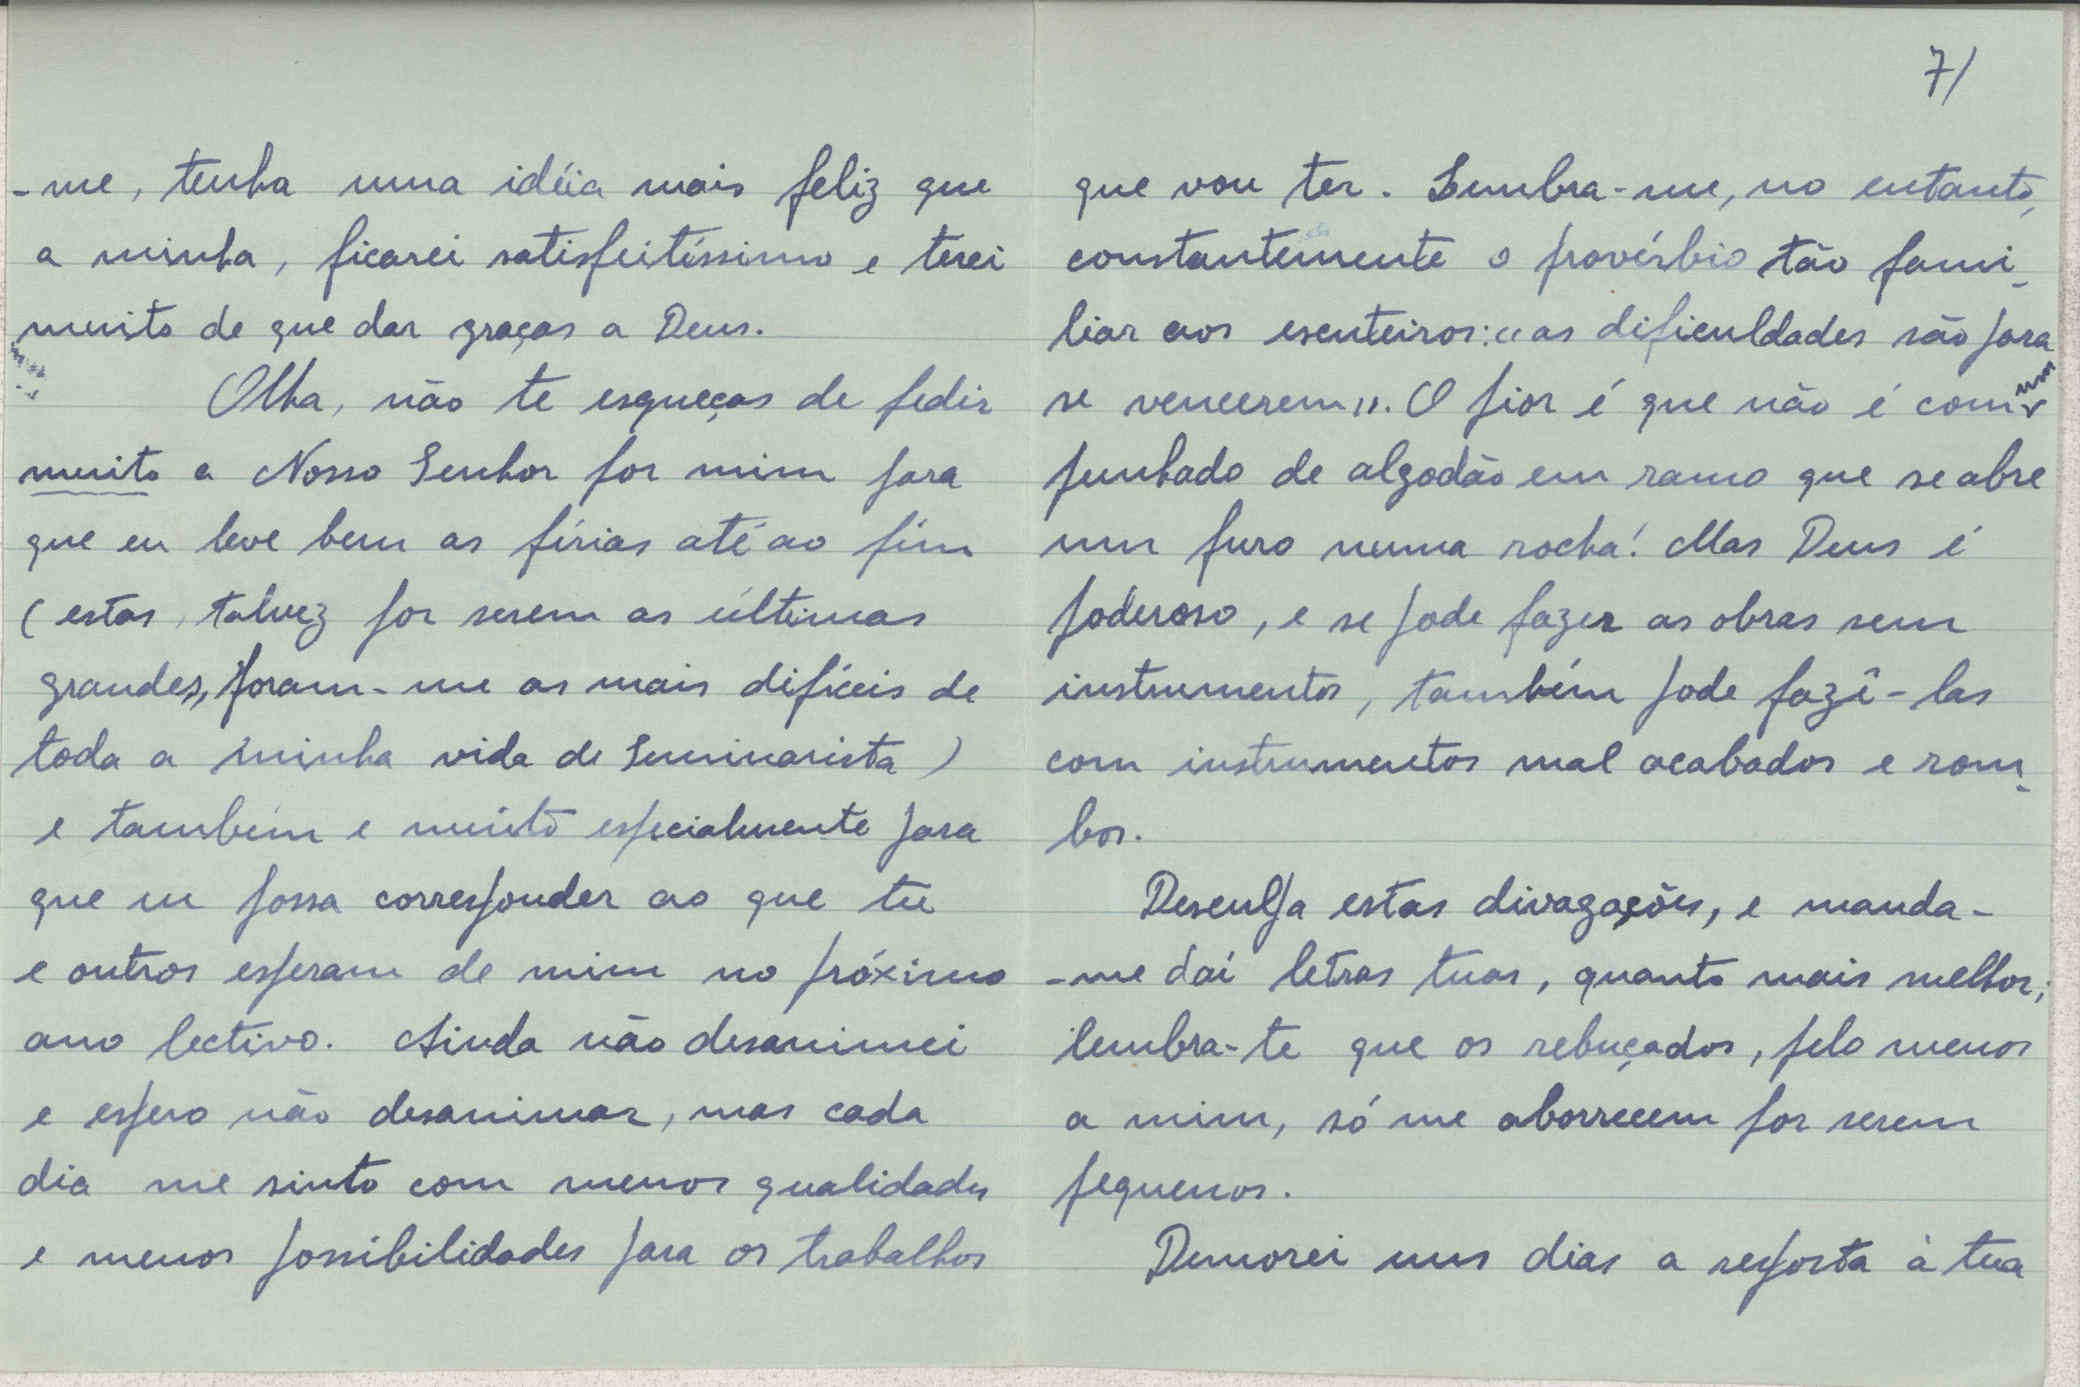 -me, tenha uma idéia mais feliz que
a minha, ficarei satisfeitíssimo e terei
muito de que dar graças a Deus.
Olha, não te esqueças de pedir
muito a Nosso Senhor por mim para
que eu leve bem as férias até ao fim
(estas, talvez por serem as últimas
grandes, foram-me as mais difíceis de
toda a minha vida de Seminarista)
e também e muito especialmente para
que eu possa corresponder ao que tu
e outros esperam de mim no próximo
ano lectivo. Ainda não desanimei
e espero não desanimar, mas cada
dia me sinto com menos qualidades
e menos possibilidades para os trabalhos
7/
que vou ter. Lembra-me, no entanto,
constantemente o provérbio tão fami-
liar aos escuteiros: "as dificuldades são para
se vencerem". O pior é que não é com um
punhado de algodão em rama que se abre
um furo numa rocha! Mas Deus é
poderoso, e se pode fazer as obras sem
instrumentos, também pode fazê-las
com instrumentos mal acabados e rom-
bos.
Desculpa estas divagações, e manda-
-me daí letras tuas, quanto mais melhor;
lembra-te que os rebuçados, pelo menos
a mim, só me aborrecem por serem
pequenos.
Demorei uns dias a resposta à tua